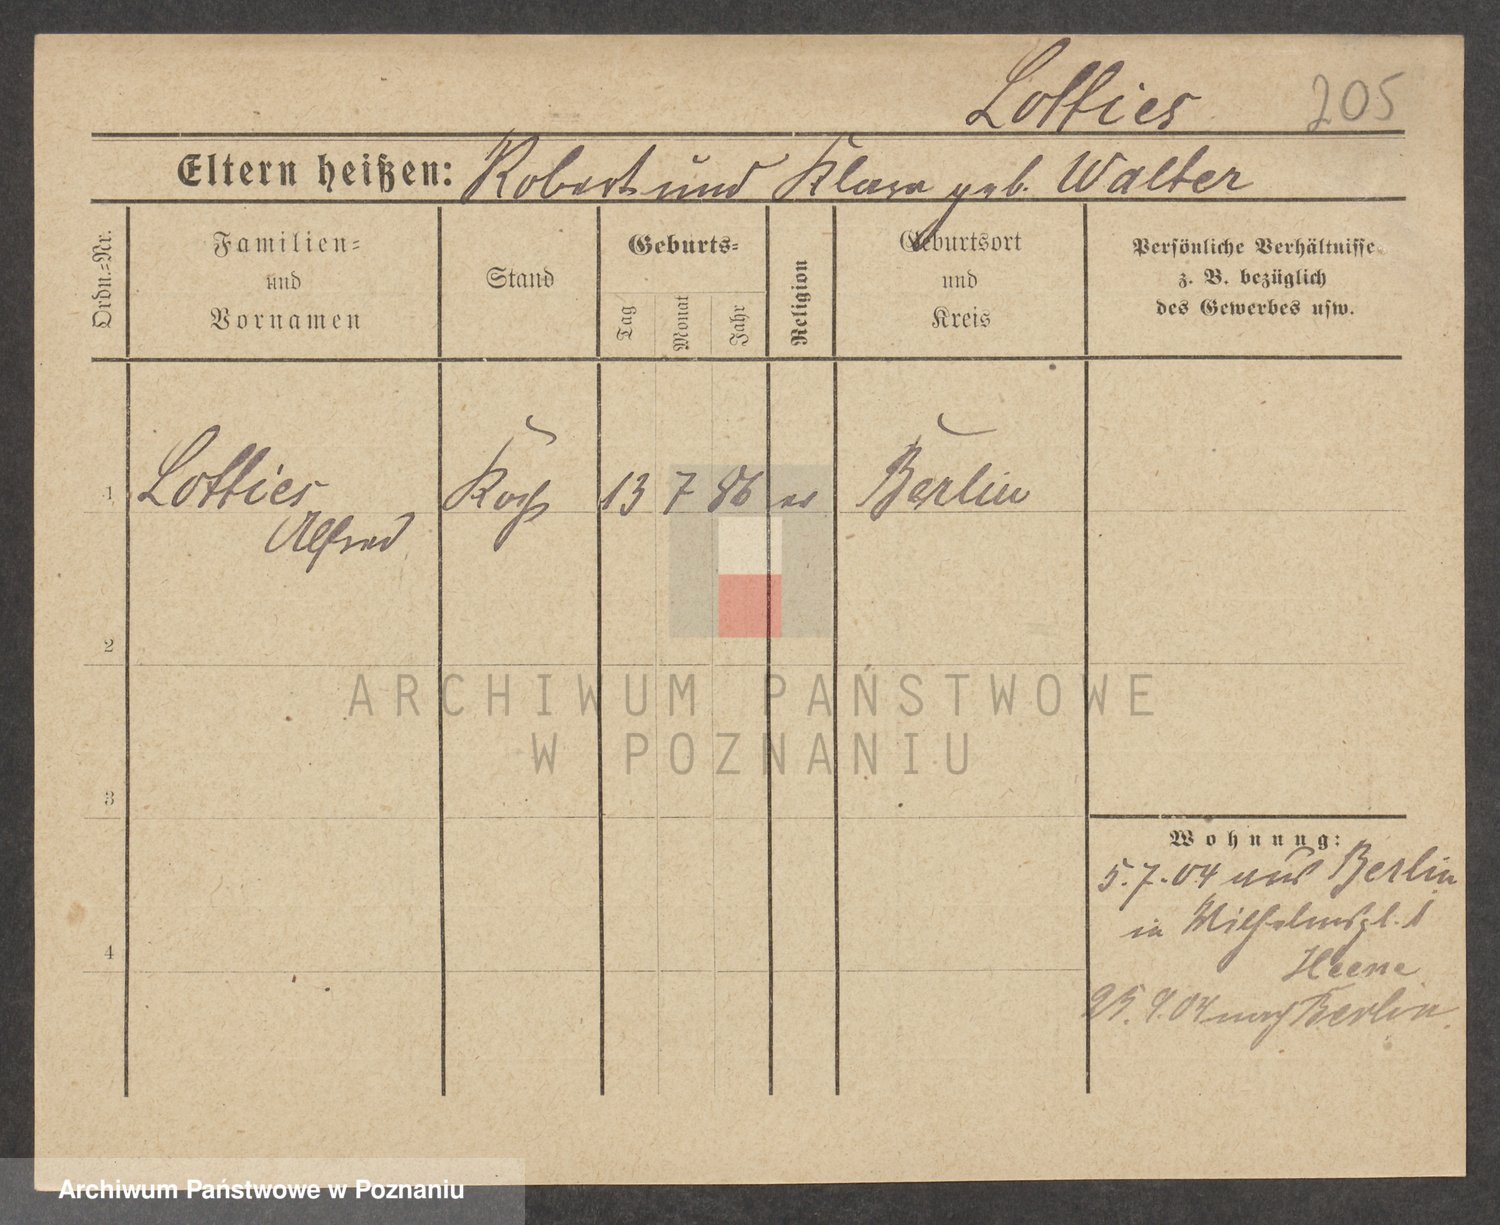 Lotties 205
Eltern heißen: Robert und Klara geb. Walter
Ordn.=Nr.
Familien=
und
Vornamen
Stand
Geburts=
Tag
Monat
Jahr
Religion
Geburtsort
und
Kreis
Persönliche Verhältnisse
z. B. bezüglich
des Gewerbes usw.
1 Lotties Koch 13 7 86 ev Berlin
Alfred
2
ARCHIWUM PAŃSTWOWE
W POZNANIU
3
Wohnung:
5.7.04 aus Berlin
in Wilhelmspl. 1
4
25.9.04 nach Berlin.
Archiwum Państwowe w Poznaniu